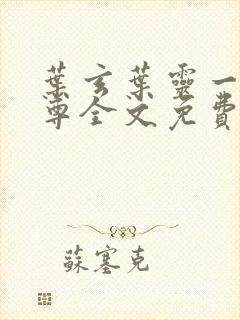 葉玄葉靈一
尊全文免費
蘇塞克